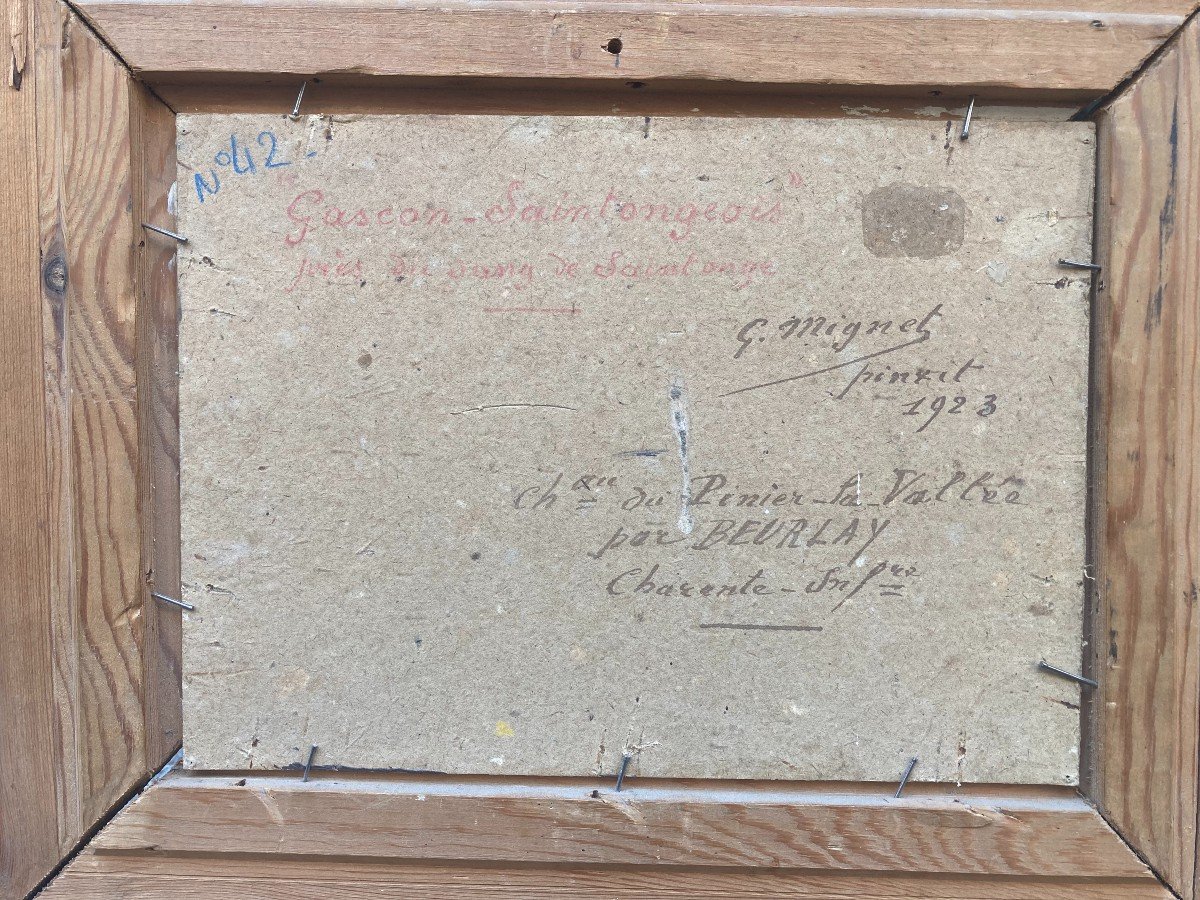 N° 42 -
"Gascon-Saintongeois"
près du sang de Saintonge
G. Mignet
pinxit
1923
Ch^au du Pinier-La-Vallée
par BEURLAY
Charente-Inf^re